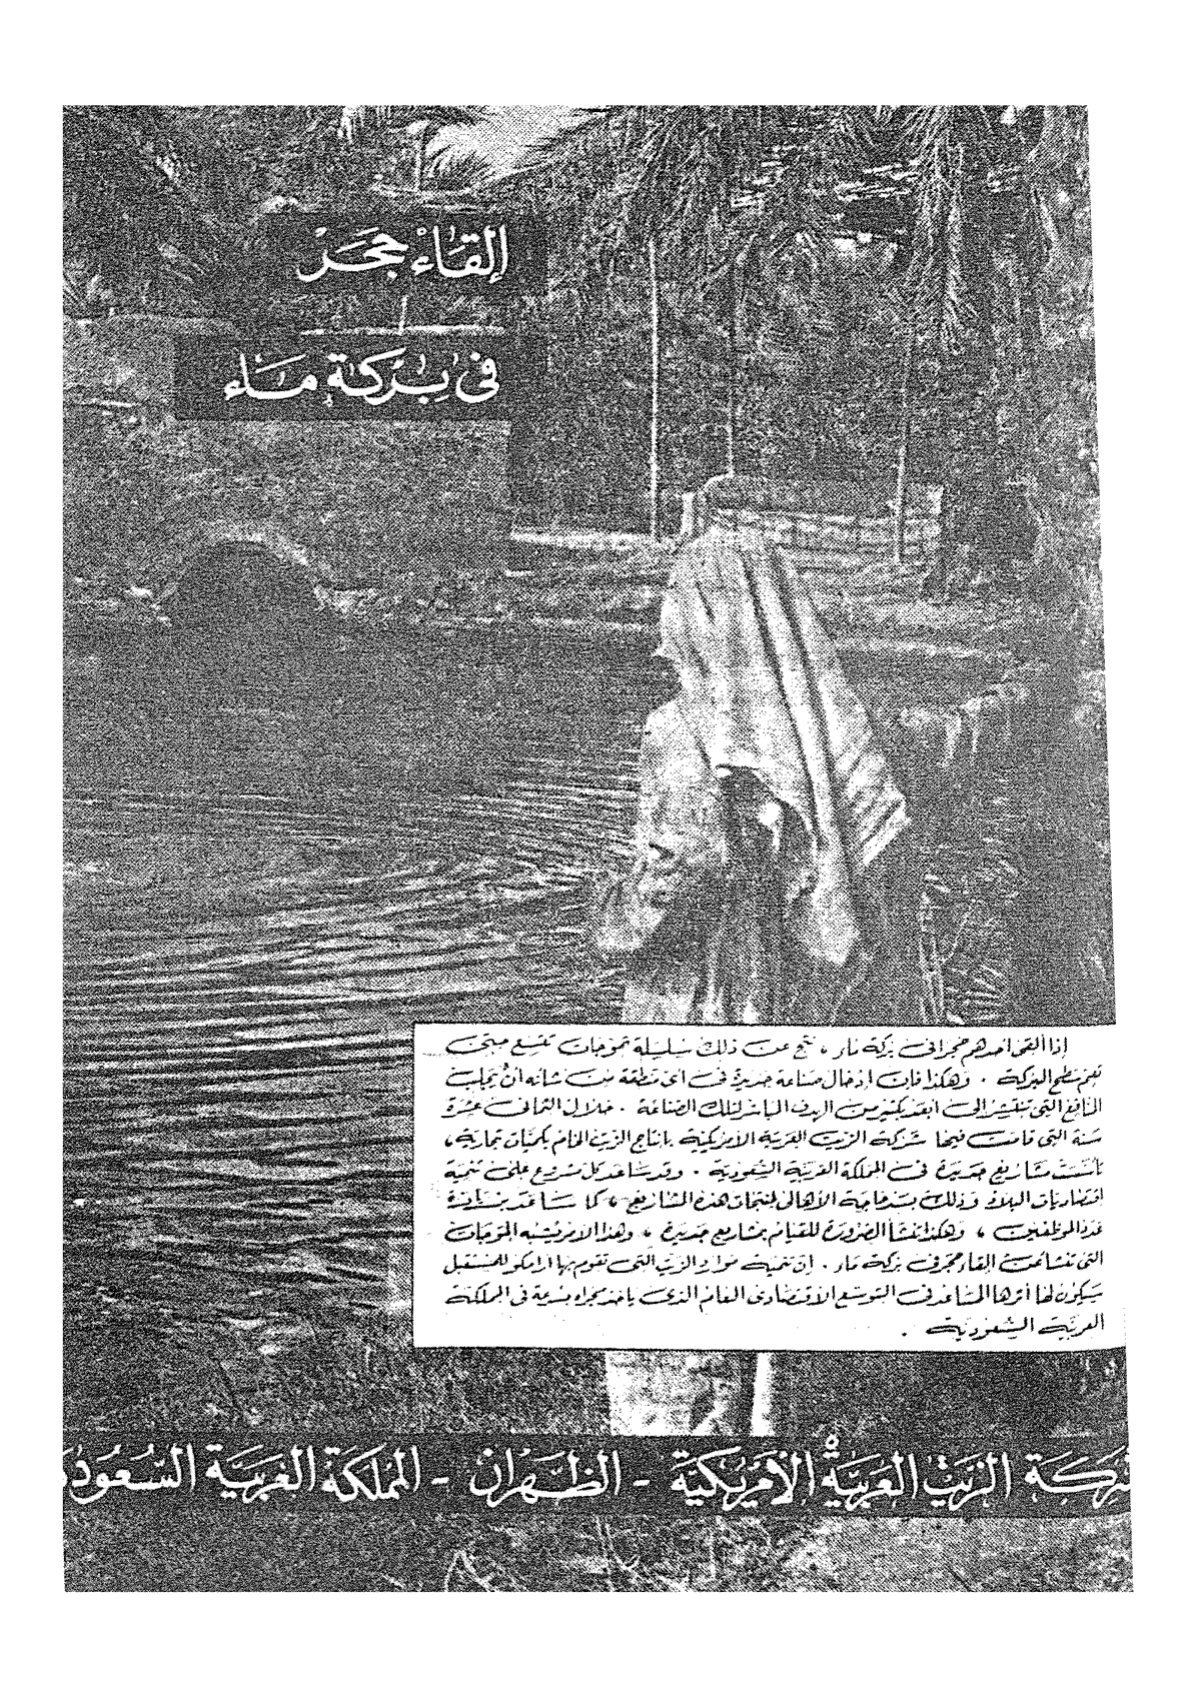 إلقاء حجر
في بركة ماء
إذا ألقى احدهم حجرا في بركة ماء ، نتج عن ذلك سلسلة تموجات تتسع حتى
تعم سطح البركة . وهكذا فان إدخال صناعة جديدة في أي منطقة من شأنه أن يجلب
المنافع التي تنتشر إلى ابعد بكثير من الهدف المباشر لتلك الصناعة . خلال الثماني عشرة
سنة التي قامت فيها شركة الزيت العربية الأمريكية بإنتاج الزيت الخام بكميات تجارية ،
تأسست مشاريع جديدة في المملكة العربية السعودية . وقد ساعد كل مشروع على تنمية
اقتصاديات البلاد وذلك بسد حاجة الأهالي لمنتجات هذه المشاريع ، كما ساعد بزيادة
عدد الموظفين ، وهكذا تنشأ الضرورة للقيام بمشاريع جديدة ، وهذا الأمر يشبه الموجات
التي تنشأ عن القاء حجر في بركة ماء . إن تنمية موارد الزيت التي تقوم بها أرامكو للمستقبل
سيكون لها أثرها المساعد في التوسع الاقتصادي العام الذي ياخذ مجراه بسرعة في المملكة
العربية السعودية .
شركة الزيت العربية الأمريكية - الظهران - المملكة العربية السعودية